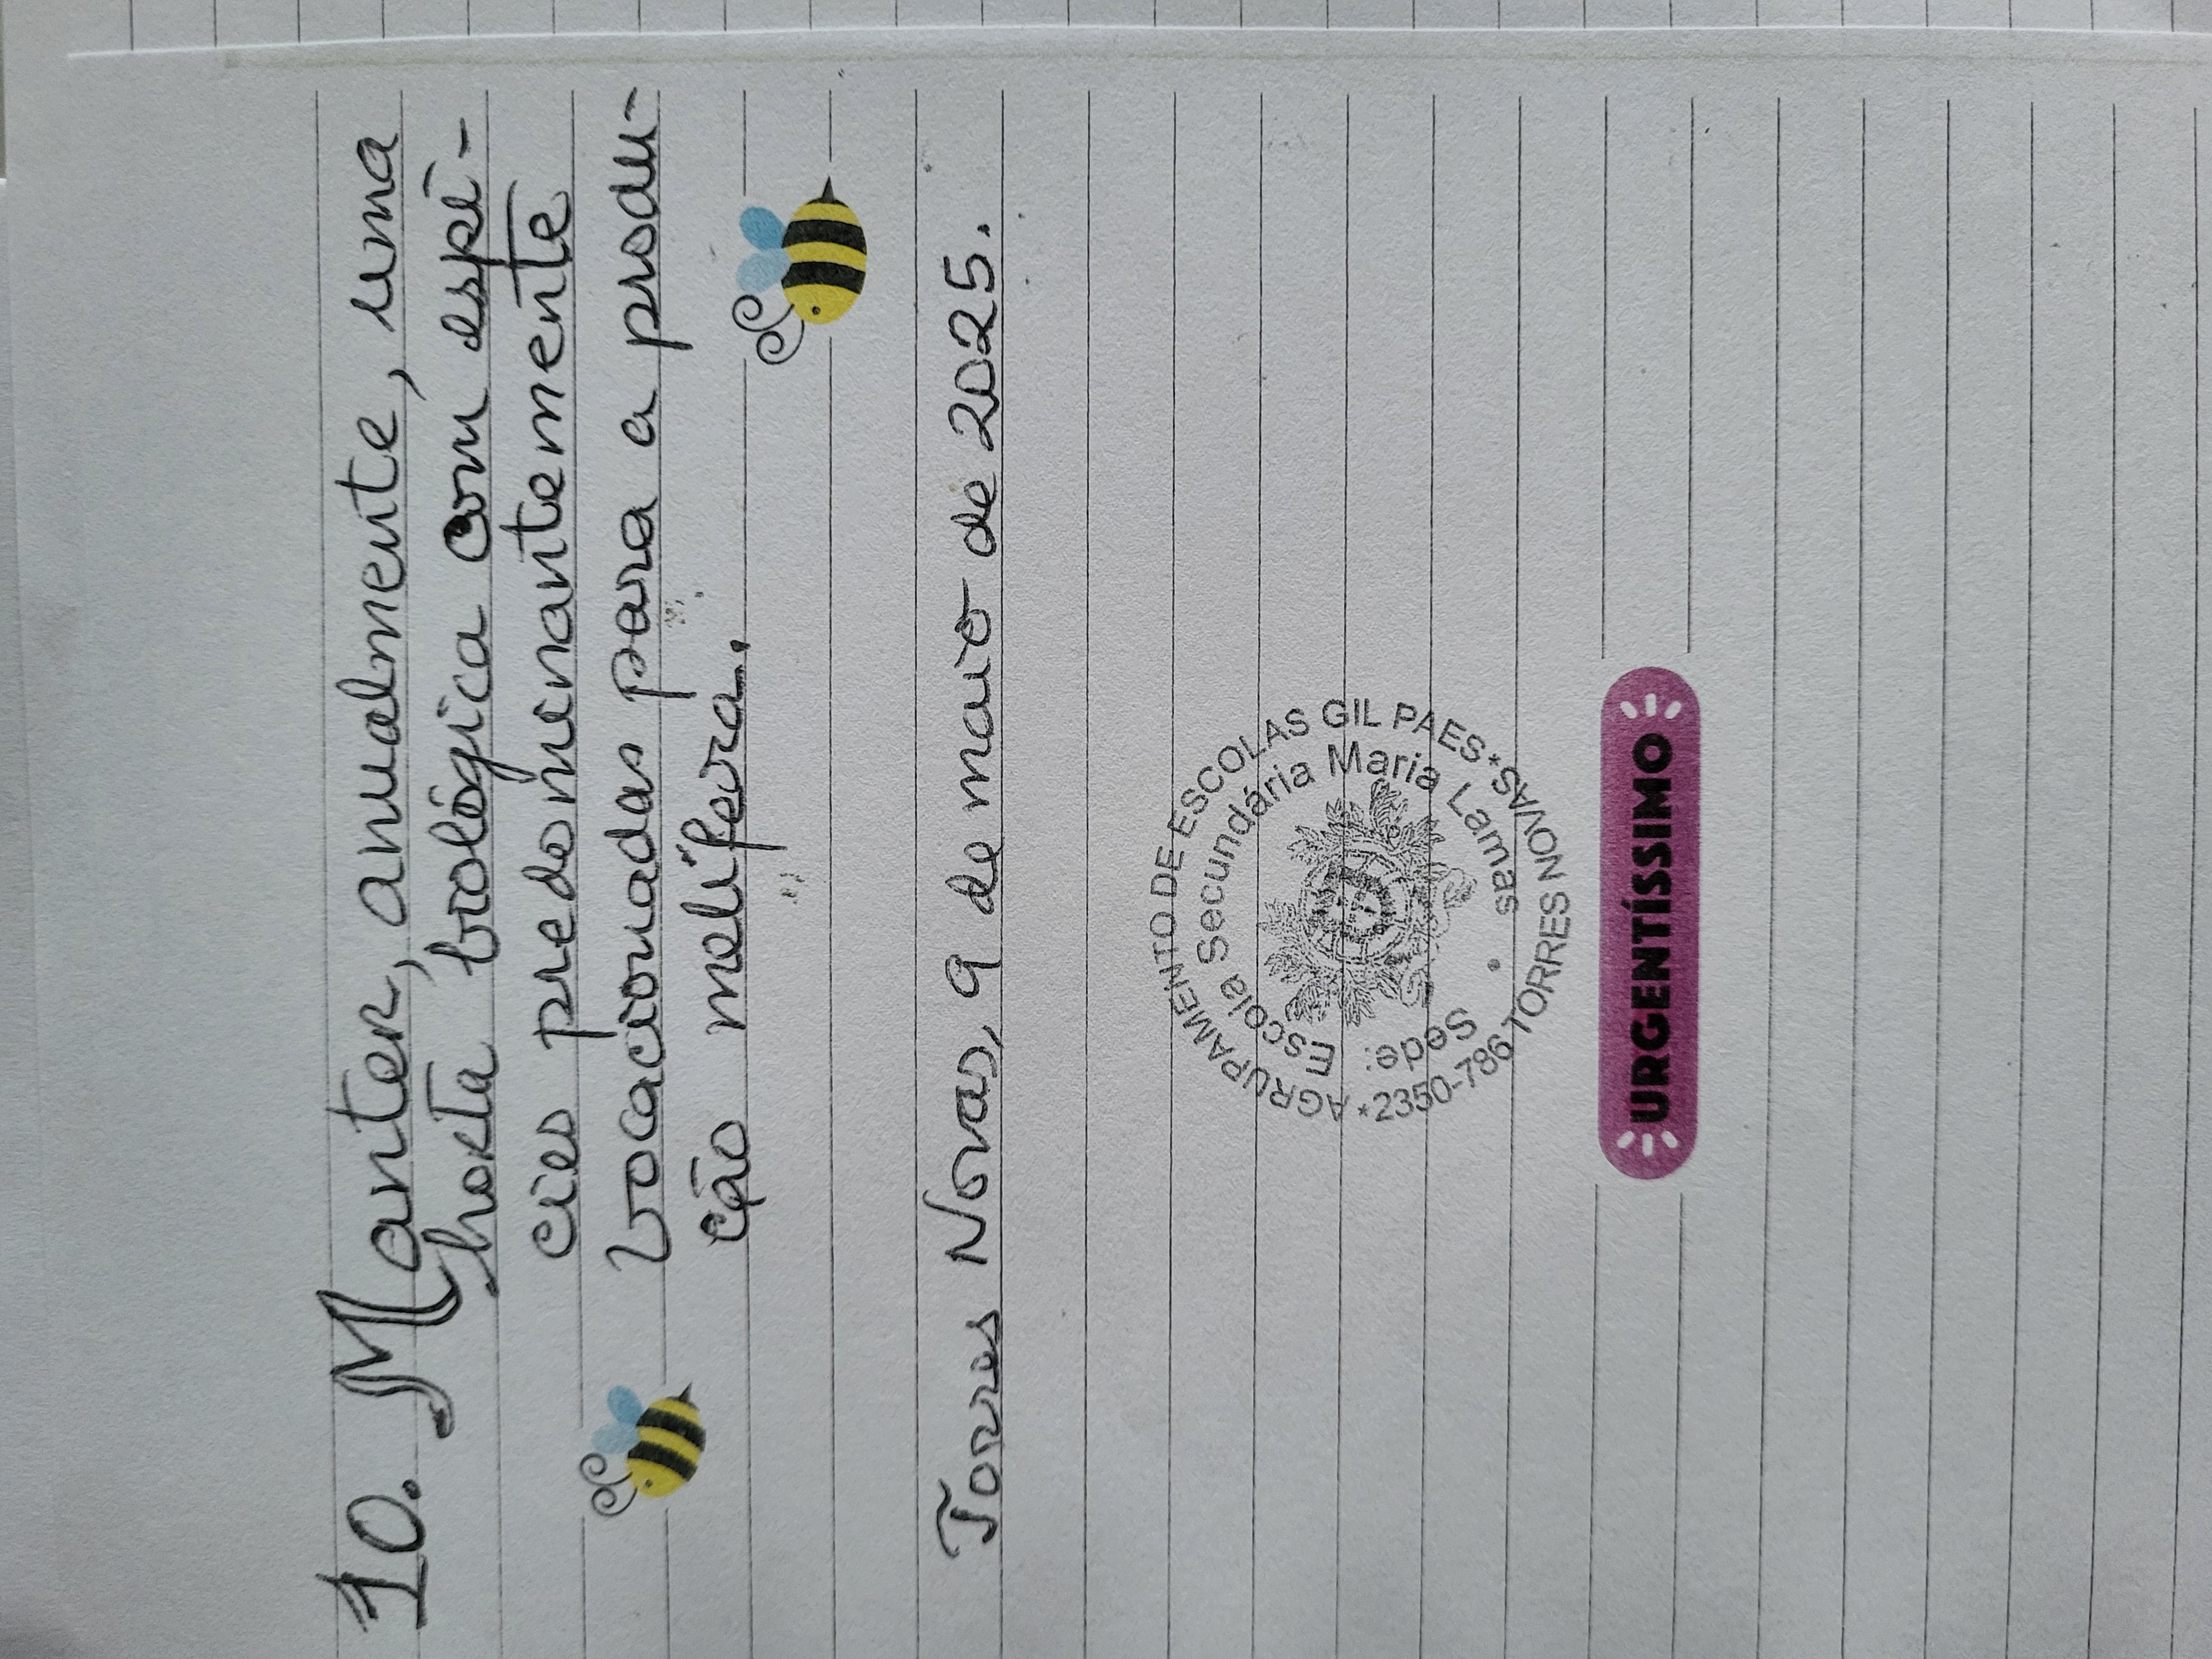 10. Manter, anualmente, uma
horta biológica com espé-
cies predominantemente
vocacionadas para a produ-
ção melífera.
Torres Novas, 9 de maio de 2025.
AGRUPAMENTO DE ESCOLAS GIL PAES*
*2350-786 TORRES NOVAS*
Sede:
Escola Secundária Maria Lamas
URGENTÍSSIMO